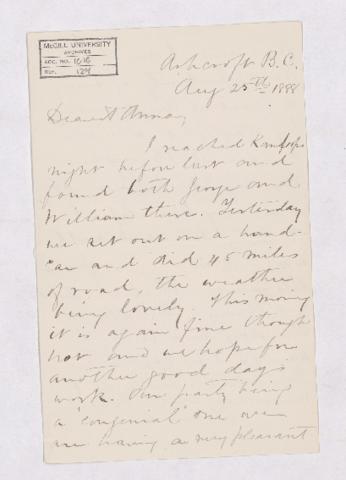 McGILL UNIVERSITY
ARCHIVES
ACC. NO. 1616
REF. 129
Ashcroft B.C.
Aug 25th 1888
Dearest Anna,
I reached Kamloops
night before last and
found both George and
William there. Yesterday
we set out on a hand-
car and did 45 miles
of road, the weather
being lovely. This morning
it is again fine though
hot and we hope for
another good day's
work. Our party being
a "congenial" one we
are having a very pleasant